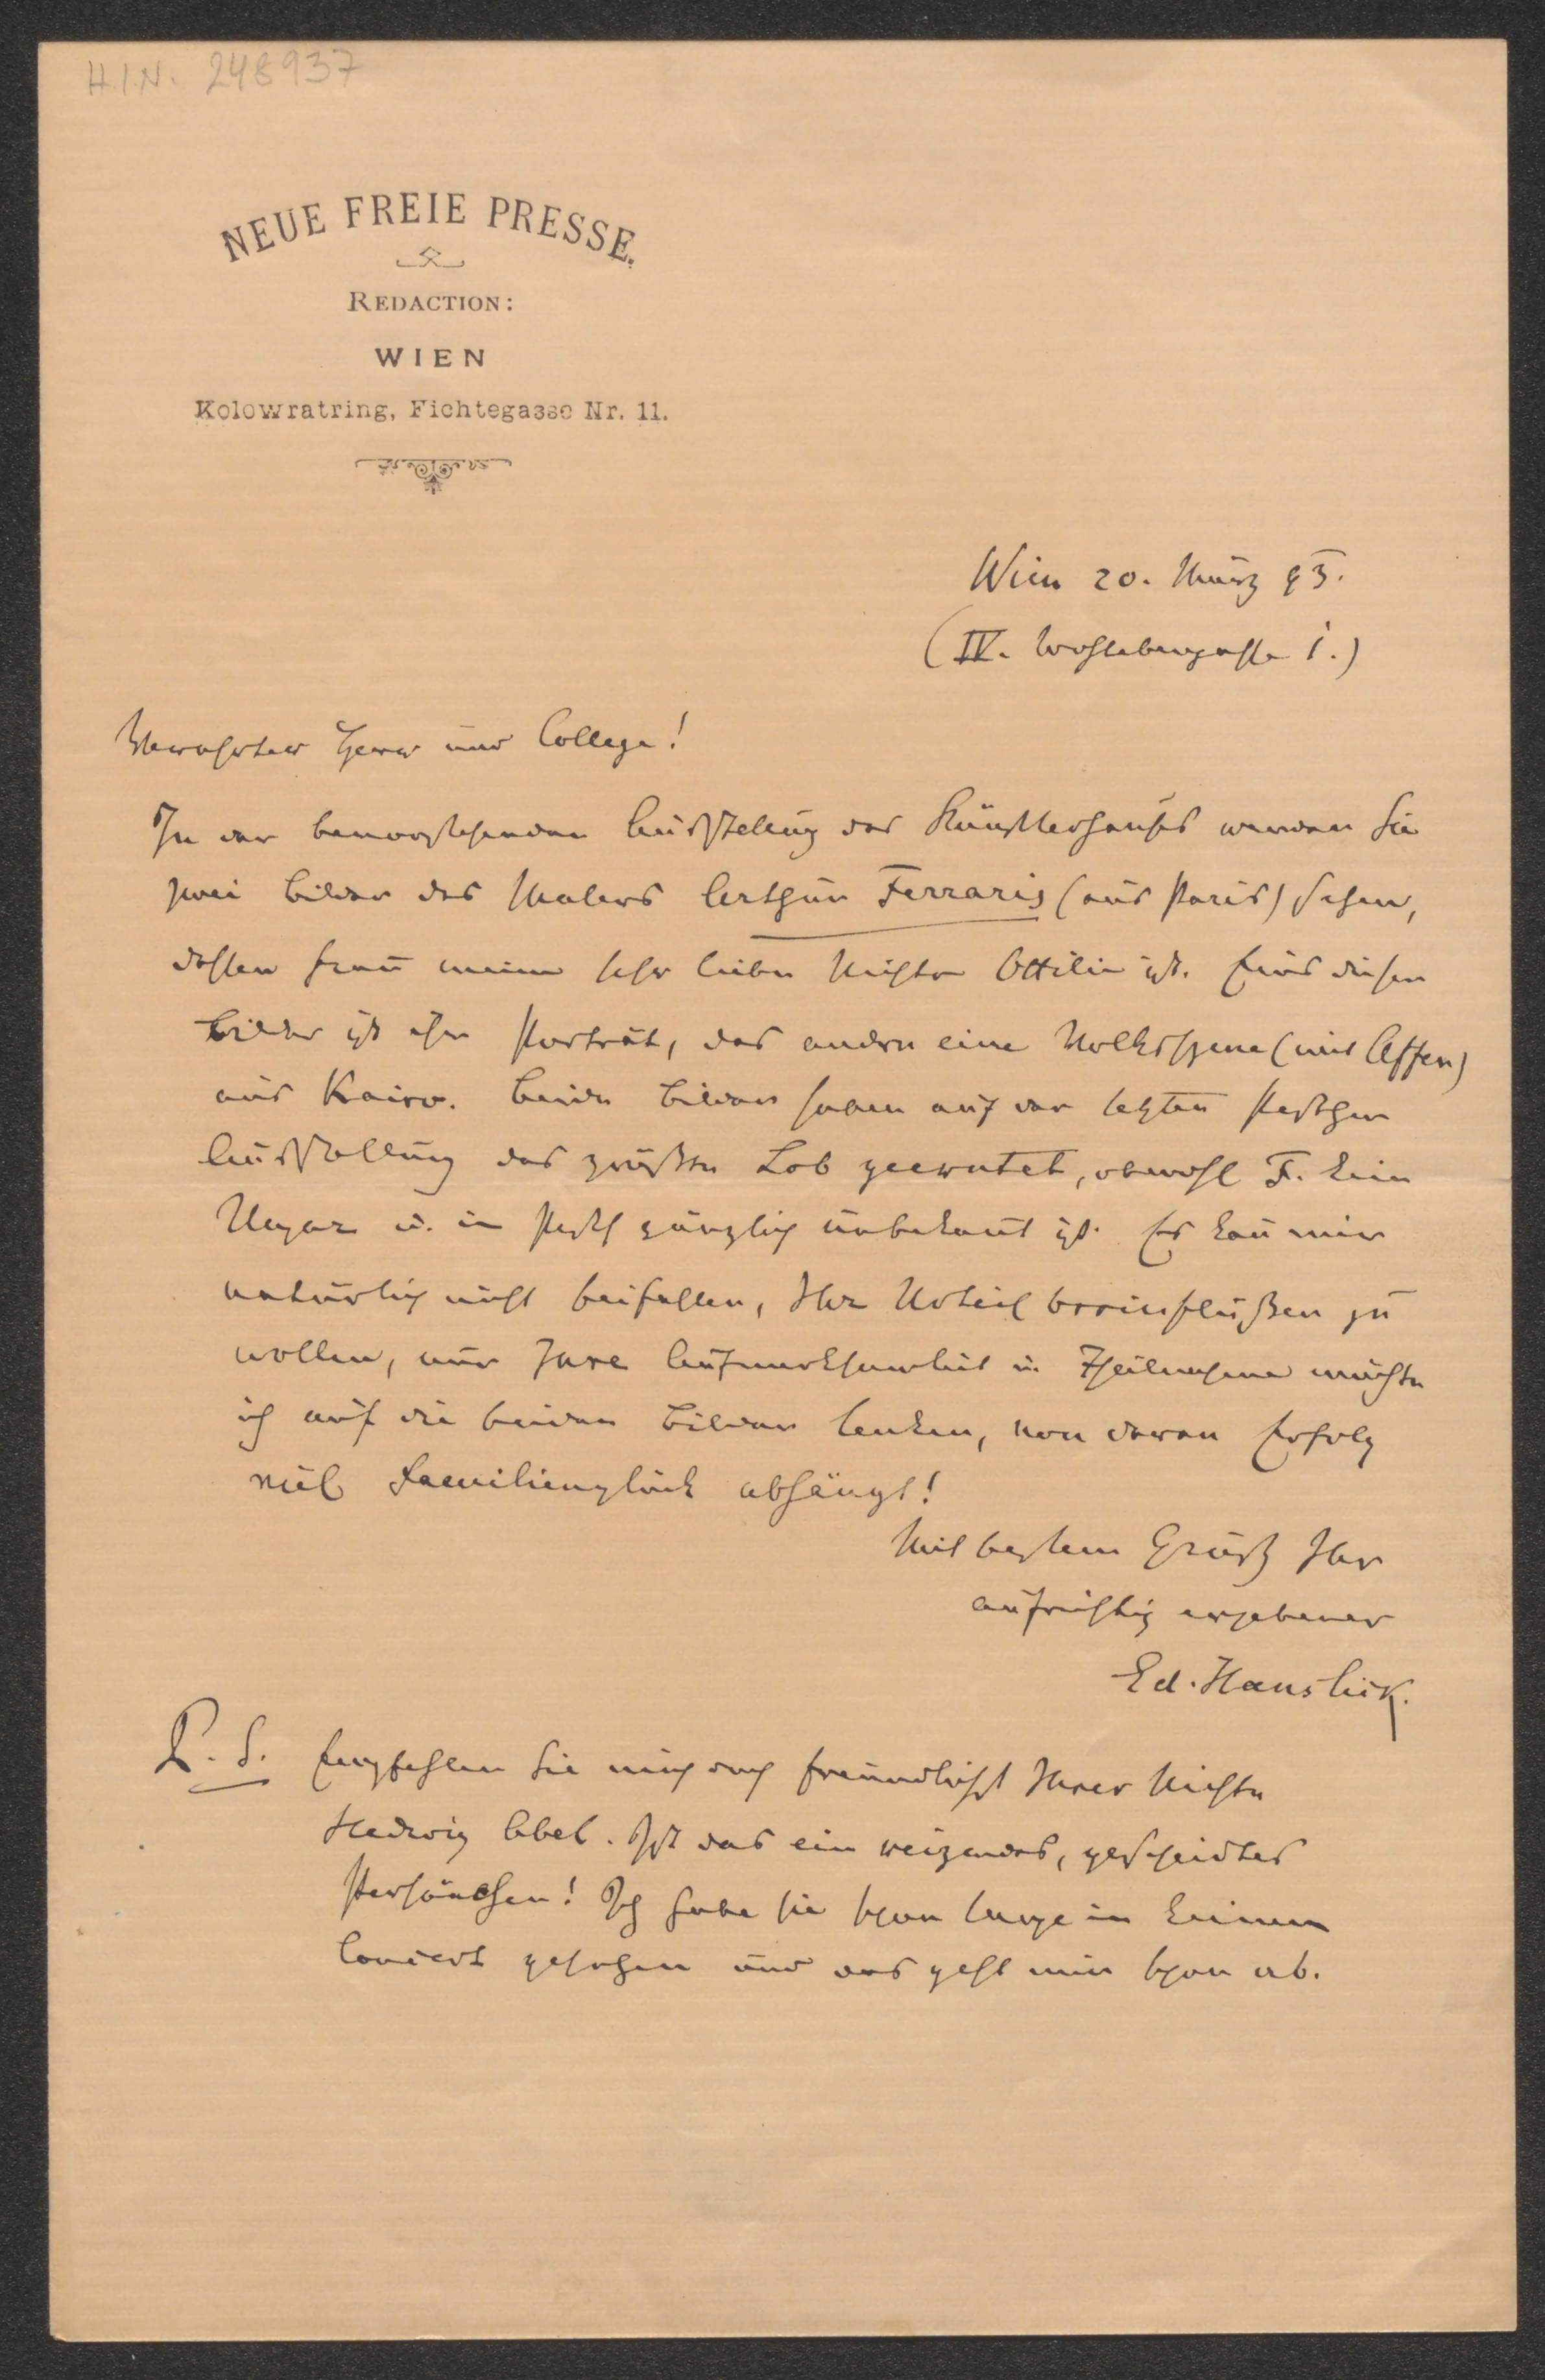 H.I.N. 248937
NEUE FREIE PRESSE.
REDACTION:
WIEN
Kolowratring, Fichtegasse Nr. 11.
Wien 20. März 93.
(IV. Wohllebengasse 1.)
Verehrter Herr und College!
In der bevorstehenden Ausstellung des Künstlerhauses werden Sie
zwei Bilder des Malers Arthur Ferraris (aus Paris) sehen,
dessen Frau meine sehr liebe Nichte Ottilie ist. Eins dieser
Bilder ist ihr Porträt, das andere eine Volksszene (mit Affen)
aus Kairo. Beide Bilder haben auf der letzten Pesther
Ausstellung das größte Lob geerntet, obwohl F. kein
Ungar u. in Pesth gänzlich unbekannt ist. Es kann mir
natürlich nicht beifallen, Ihr Urteil beeinflußen zu
wollen, nur Ihre Aufmerksamkeit u. Theilnahme möchte
ich auf die beiden Bilder lenken, von deren Erfolg
viel Familienglück abhängt!
Mit bestem Gruß Ihr
aufrichtig ergebener
Ed. Hanslick.
P. S. Empfehlen Sie mich doch freundlichst Ihrer Nichte
Hedwig Abel. Ist das ein reizendes, gescheidtes
Persönchen! Ich habe sie schon lange in keinem
Concert gesehen und das geht mir schon ab.